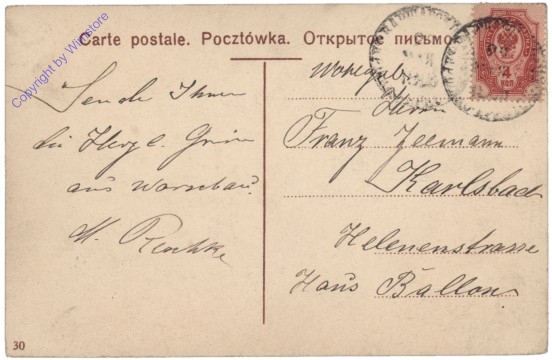 Carte postale. Pocztówka. Открытое письмо.
Sende Ihnen
die Herzl. Grüße
aus Warschau.
M.
Wohlgeb.
Herrn
Franz Zeemann
Karlsbad
Helenenstrasse
Haus Ballon
4
КОП
30
Copyright by Winstore